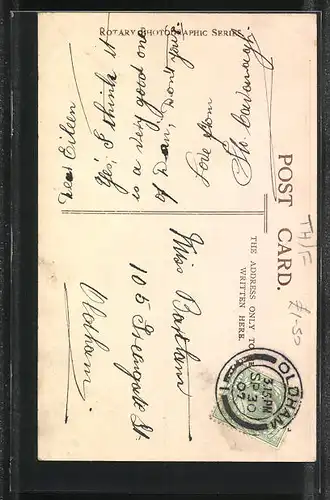 ROTARY PHOTOGRAPHIC SERIES
POST CARD.
THE ADDRESS ONLY TO BE
WRITTEN HERE.
Dear Eileen
Yes, I think it
is a very good one
of Dan, Dont you.
Love from
Cavanagh.
Miss
105 St.
Oldham.
OLDHAM
3.15PM
SP 30
07
TH/F
£1-50